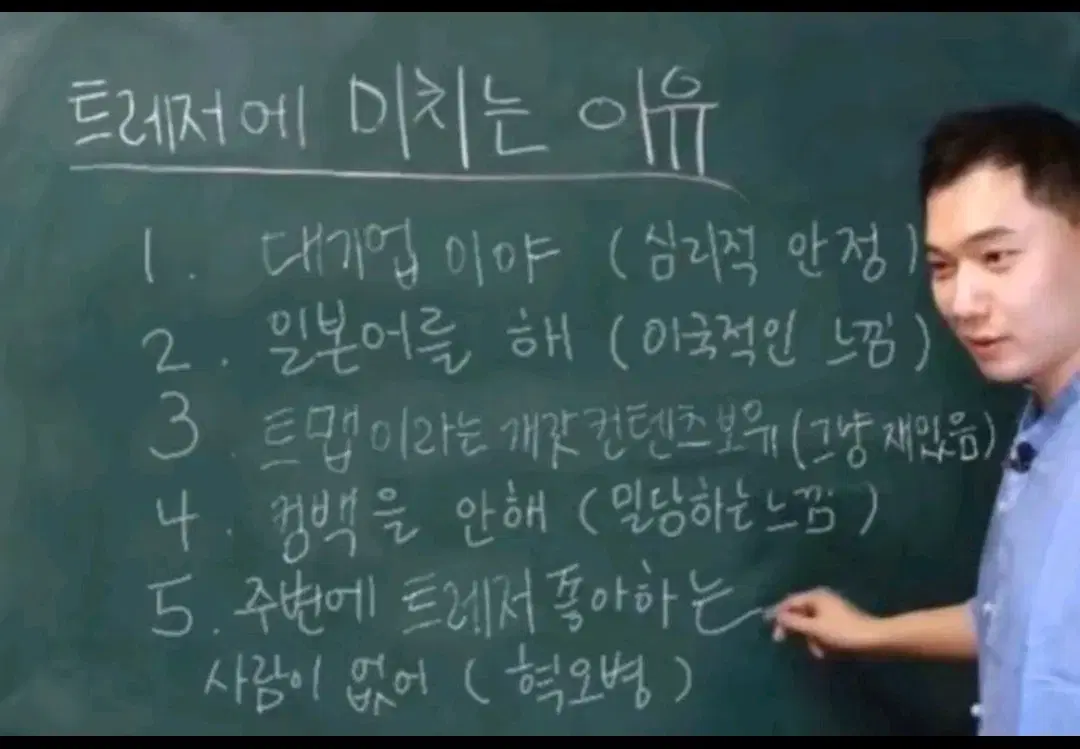 트레저에 미치는 이유
1. 대기업이야 (심리적 안정)
2. 일본어를 해 (이국적인 느낌)
3 트맵이라는 개갓컨텐츠보유 (그냥 재있음)
4. 컴백을 안해 (밀당하는느낌)
5. 주변에 트레저 좋아하는
사람이 없어 (혁오병)